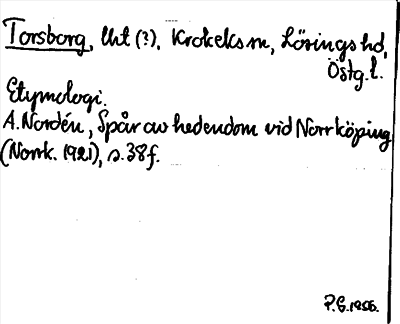 Torsborg, lht (?), Krokeks sn, Lösings hd,
Östg. l.
Etymologi.
A. Nordén, Spår av hedendom vid Norrköping
(Norrk. 1921), s. 38 f.
P.G. 1956.